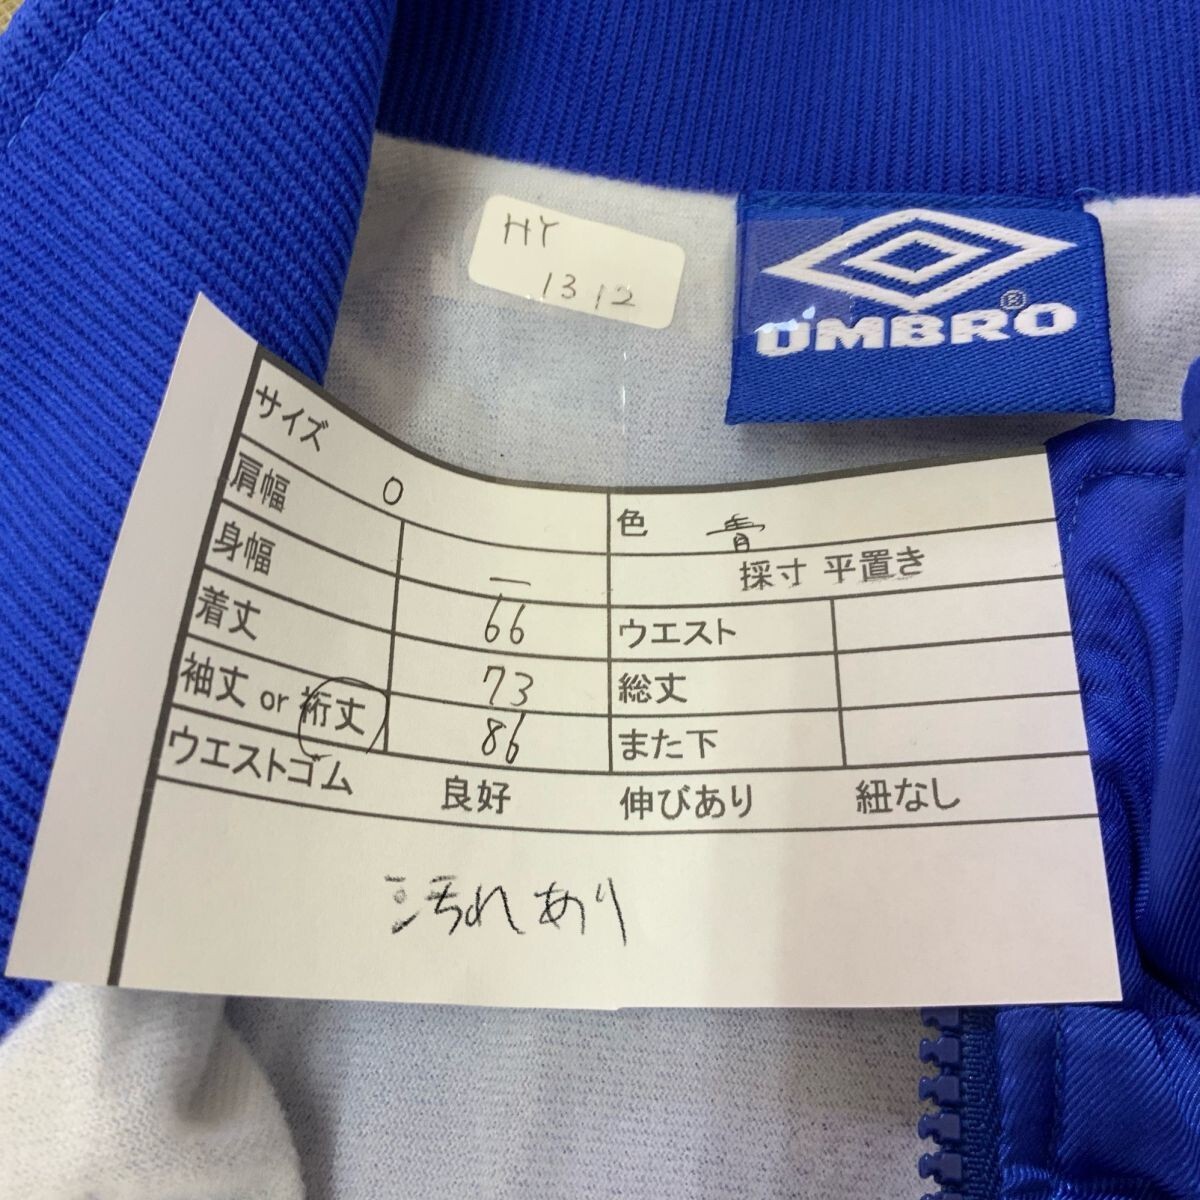 HY
1312
UMBRO®
サイズ O 色 青
肩幅 — 採寸 平置き
身幅 66 ウエスト
着丈 73 総丈
袖丈 or 裄丈 86 また下
ウエストゴム 良好 伸びあり 紐なし
汚れあり